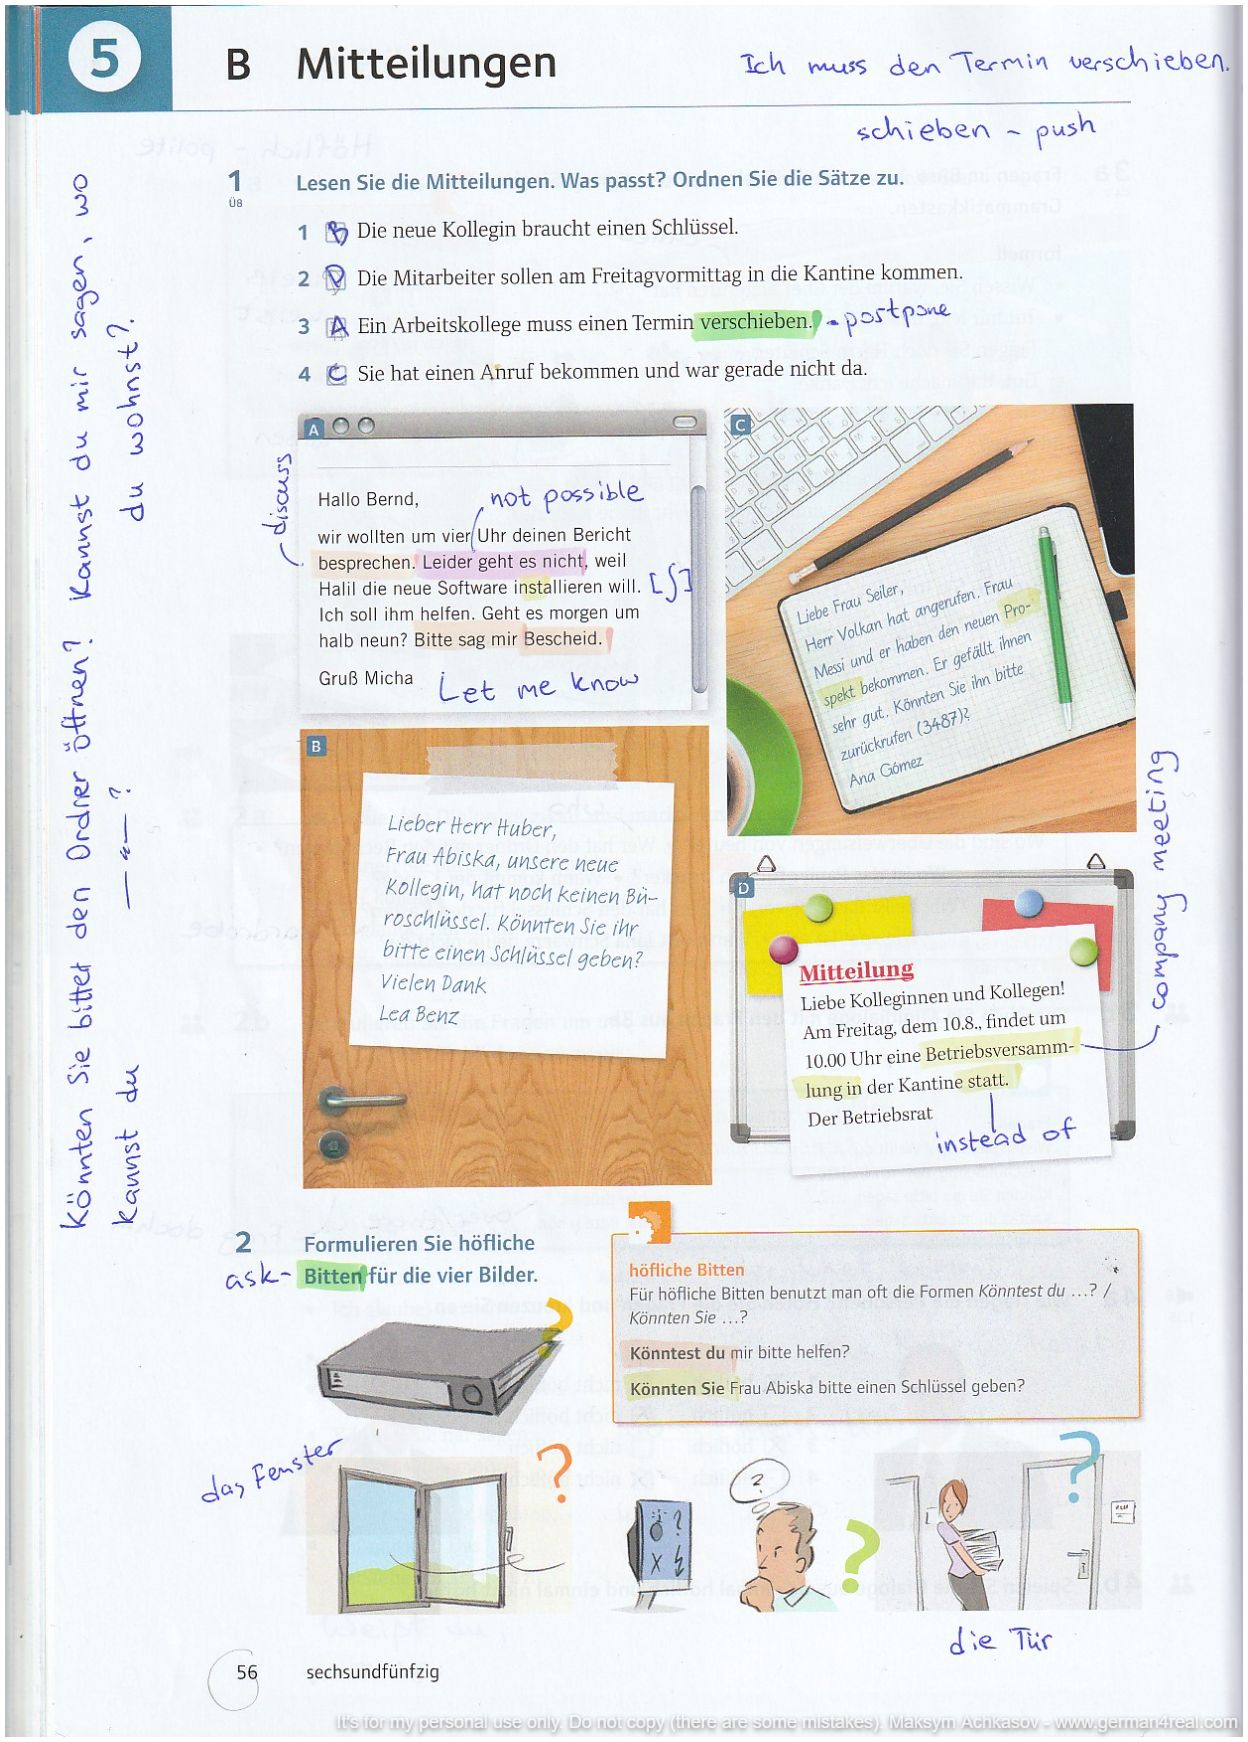 5
B Mitteilungen
Ich muss den Termin verschieben.
schieben - push
1 Lesen Sie die Mitteilungen. Was passt? Ordnen Sie die Sätze zu.
Ü8
1 B Die neue Kollegin braucht einen Schlüssel.
2 D Die Mitarbeiter sollen am Freitagvormittag in die Kantine kommen.
3 A Ein Arbeitskollege muss einen Termin verschieben. - postpone
4 C Sie hat einen Anruf bekommen und war gerade nicht da.
A
Hallo Bernd,
not possible
discuss
wir wollten um vier Uhr deinen Bericht
besprechen. Leider geht es nicht, weil
Halil die neue Software installieren will. [ʃ]
Ich soll ihm helfen. Geht es morgen um
halb neun? Bitte sag mir Bescheid.
Gruß Micha
Let me know
C
Liebe Frau Seiler,
Herr Volkan hat angerufen. Frau
Messi und er haben den neuen Pro-
spekt bekommen. Er gefällt ihnen
sehr gut. Könnten Sie ihn bitte
zurückrufen (3487)?
Ana Gómez
B
Lieber Herr Huber,
Frau Abiska, unsere neue
Kollegin, hat noch keinen Bü-
roschlüssel. Könnten Sie ihr
bitte einen Schlüssel geben?
Vielen Dank
Lea Benz
D
Mitteilung
Liebe Kolleginnen und Kollegen!
Am Freitag, dem 10.8., findet um
10.00 Uhr eine Betriebsversamm-
lung in der Kantine statt.
Der Betriebsrat
instead of
company meeting
Könnten Sie bitte den Ordner öffnen? Kannst du mir sagen, wo
Kannst du —"—? du wohnst?
2 Formulieren Sie höfliche
ask- Bitten für die vier Bilder.
höfliche Bitten
Für höfliche Bitten benutzt man oft die Formen Könntest du ...? /
Könnten Sie ...?
Könntest du mir bitte helfen?
Könnten Sie Frau Abiska bitte einen Schlüssel geben?
?
das Fenster
?
?
?
?
die Tür
56 sechsundfünfzig
It's for my personal use only. Do not copy (there are some mistakes). Maksym Achkasov - www.german4real.com